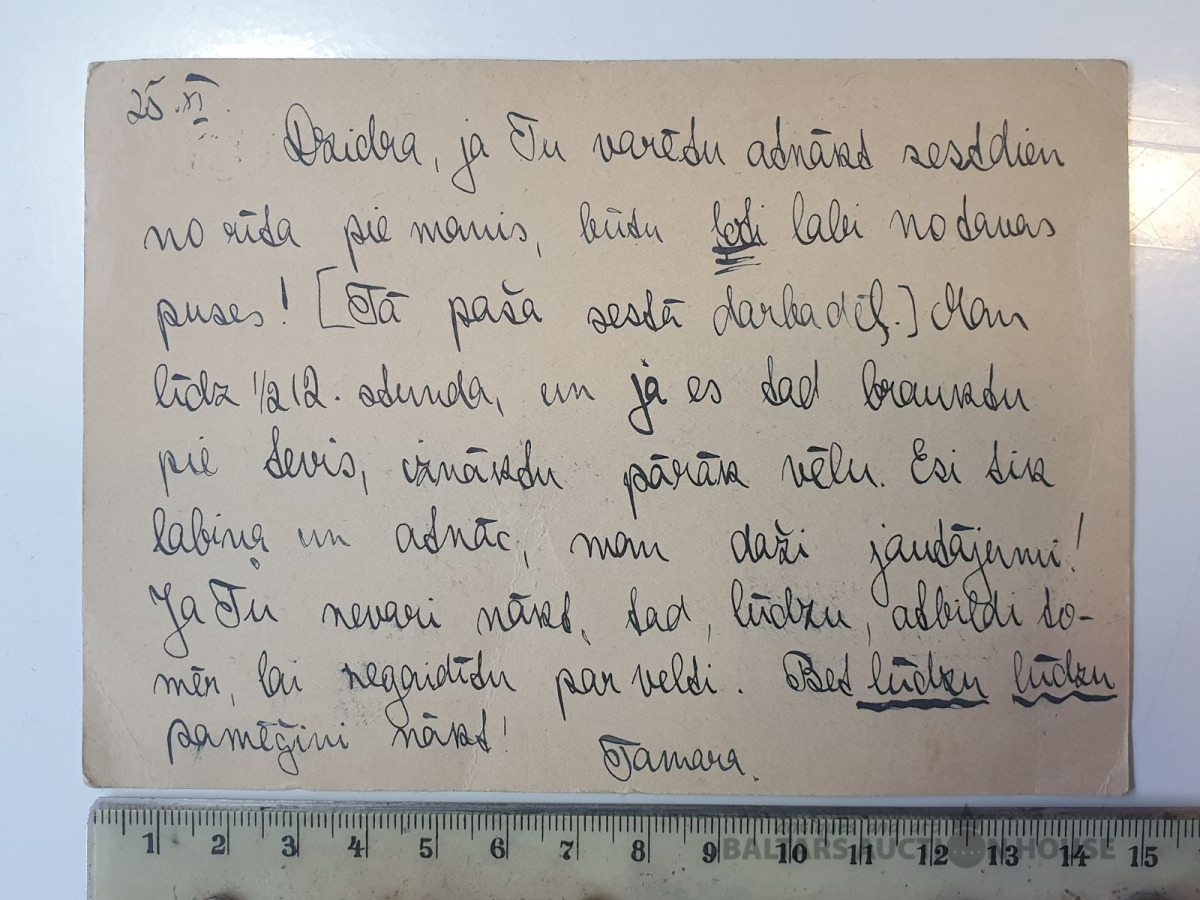 25. XI
Dzidra, ja Tu varētu atnākt sestdien
no rīta pie manis, būtu ļoti labi no tavas
puses! [Tā paša sestā darba dēļ.] Man
līdz 1/2 12. stunda, un ja es tad brauktu
pie tevis, iznāktu pārāk vēlu. Esi tik
labiņa un atnāc, man daži jautājumi!
Ja Tu nevari nākt, tad, lūdzu, atbildi to-
mēr, lai negaidītu par velti. Bet lūdzu lūdzu
pamēģini nākt!
Tamara.
1 2 3 4 5 6 7 8 9 10 11 12 13 14 15
BALTARS AUCTION HOUSE